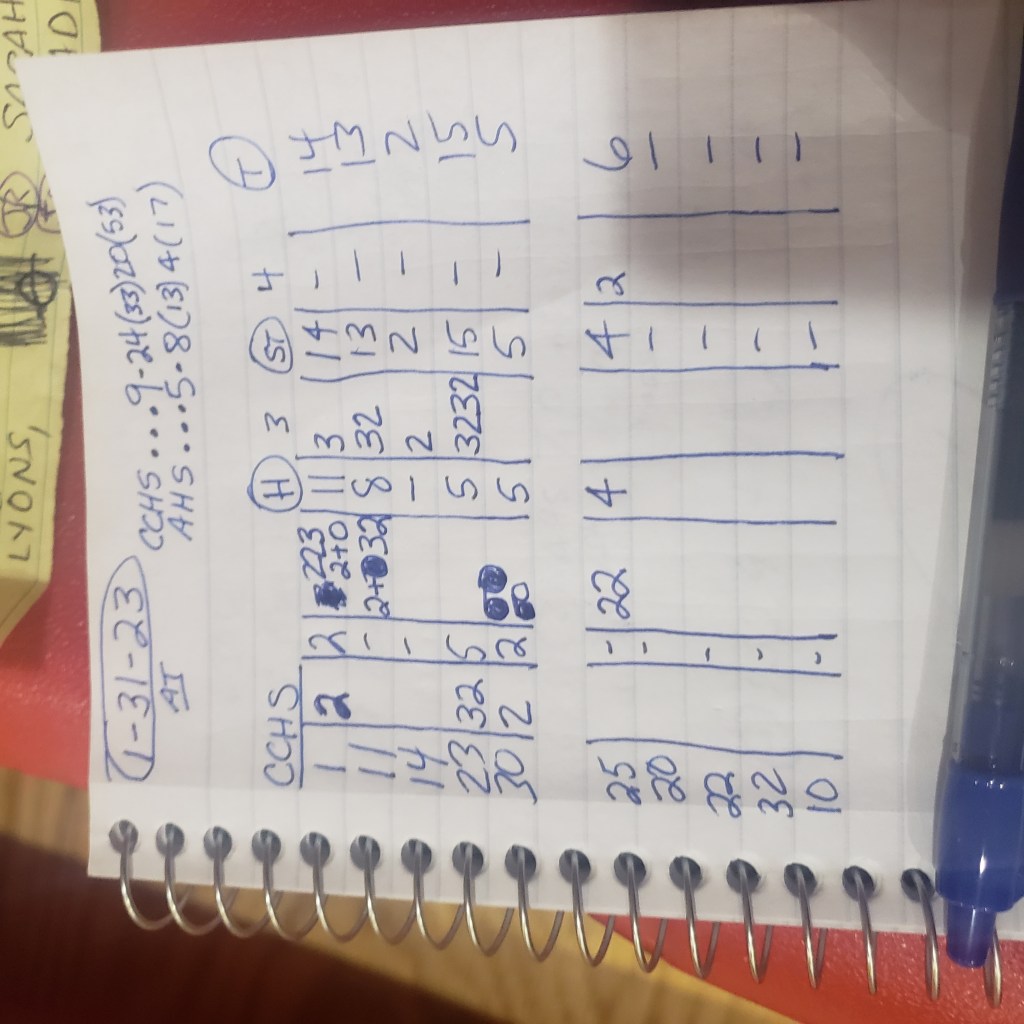 LYONS,
JR
1-31-23
AT
CCHS....9-24(33)20(53)
AHS...5-8(13)4(17)
CCHS H 3 ST 4 T
1 2 2 223 2+0 11 3 14 - 14
11 - 2+0 32 8 32 13 - 13
14 - - 2 2 - 2
23 32 5 5 3232 15 - 15
30 2 2 5 5 - 5
25 - 22 4 4 2 6
20 - - -
22 - - -
32 - - -
10 - - -